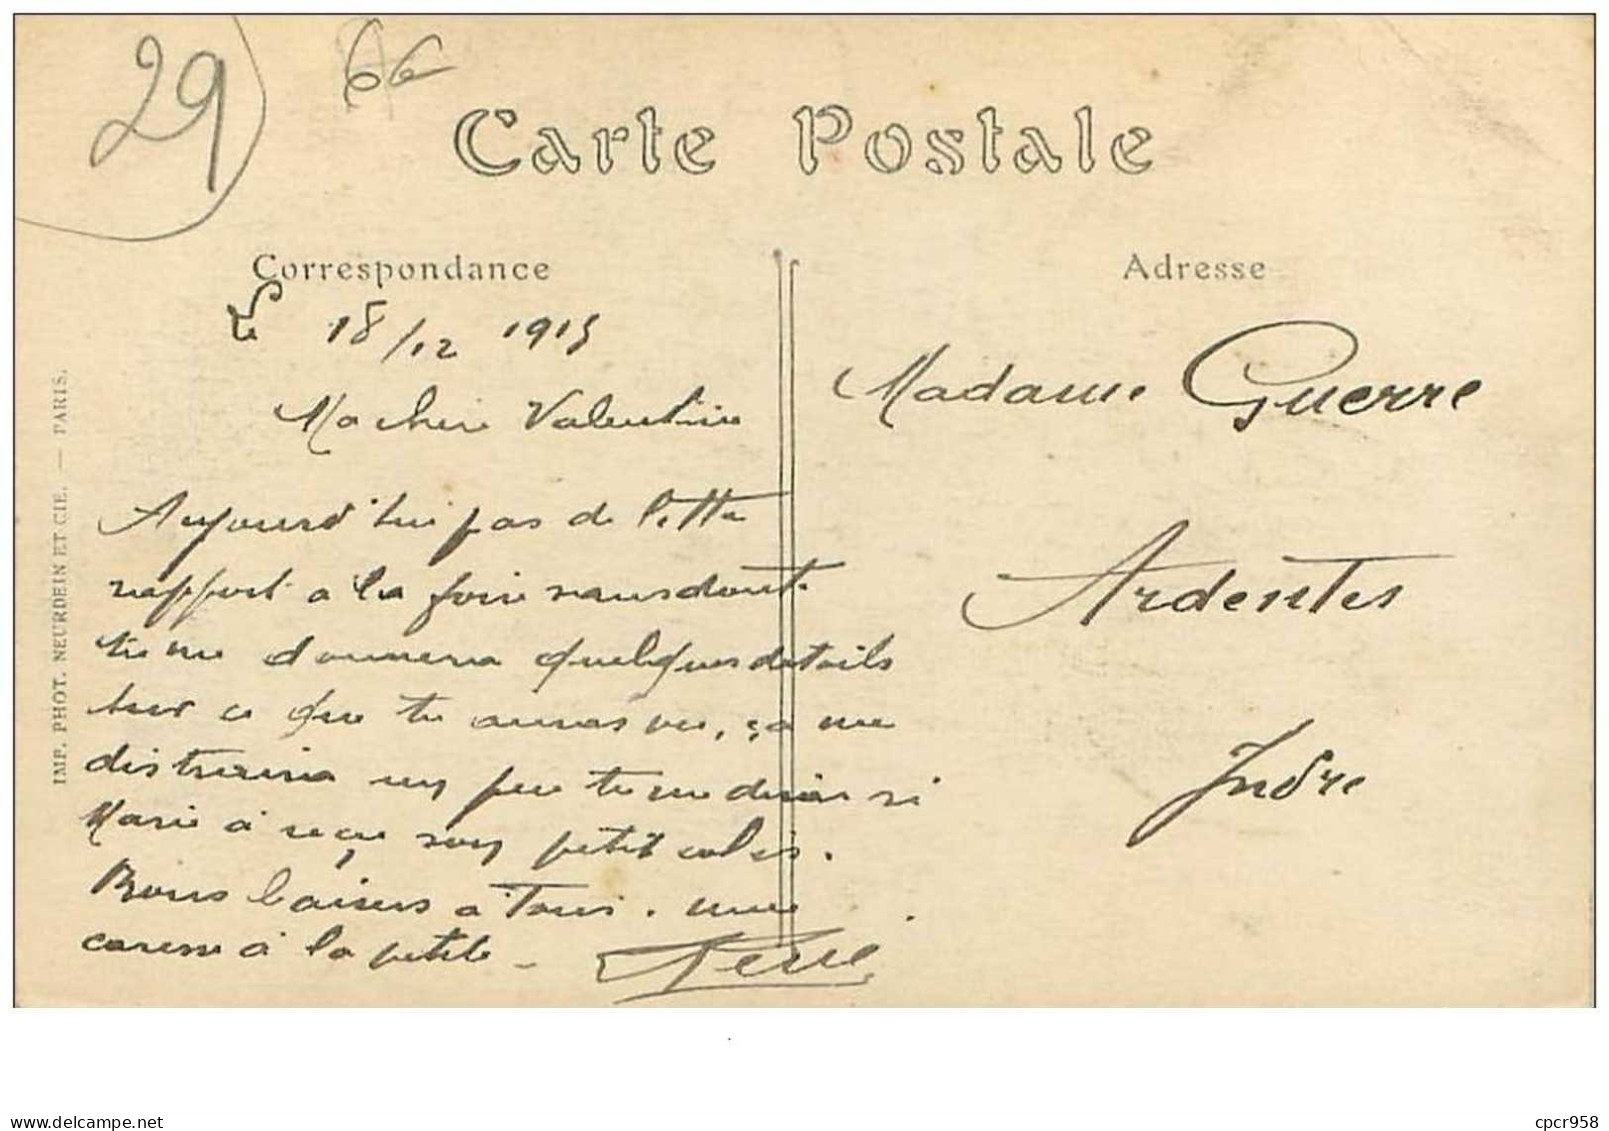 29
66
Carte Postale
Correspondance
Adresse
Le 18/12 1915
Ma chère Valentine
Aujourd'hui pas de lettre
rapport à la foire sans doute
tu me donnera quelques détails
sur ce que tu auras vu, ça me
distraira un peu tu me diras si
Marie à reçu son petit colis.
Bons baisers a Tous. une
caresse à la petite _
Madame Guerre
Ardentes
Indre
IMP. PHOT. NEURDEIN ET CIE. — PARIS.
cpcr958